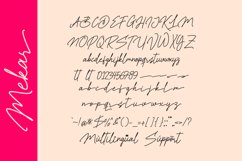 Mekar
ABCDEFGHIJKLM
NOPQRSTUVWXYZ
abcdefghijklmnopqrstuvwxyz
0123456789
abcdefghijklm
nopqrstuvwxyz
Multilingual Support